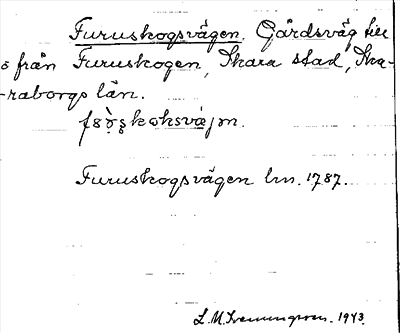 Furuskogsvägen. Gårdsväg till
o från Furuskogen, Skara stad, Ska-
-raborgs län.
Furuskogsvägen lm. 1787.
L. M. 1943.